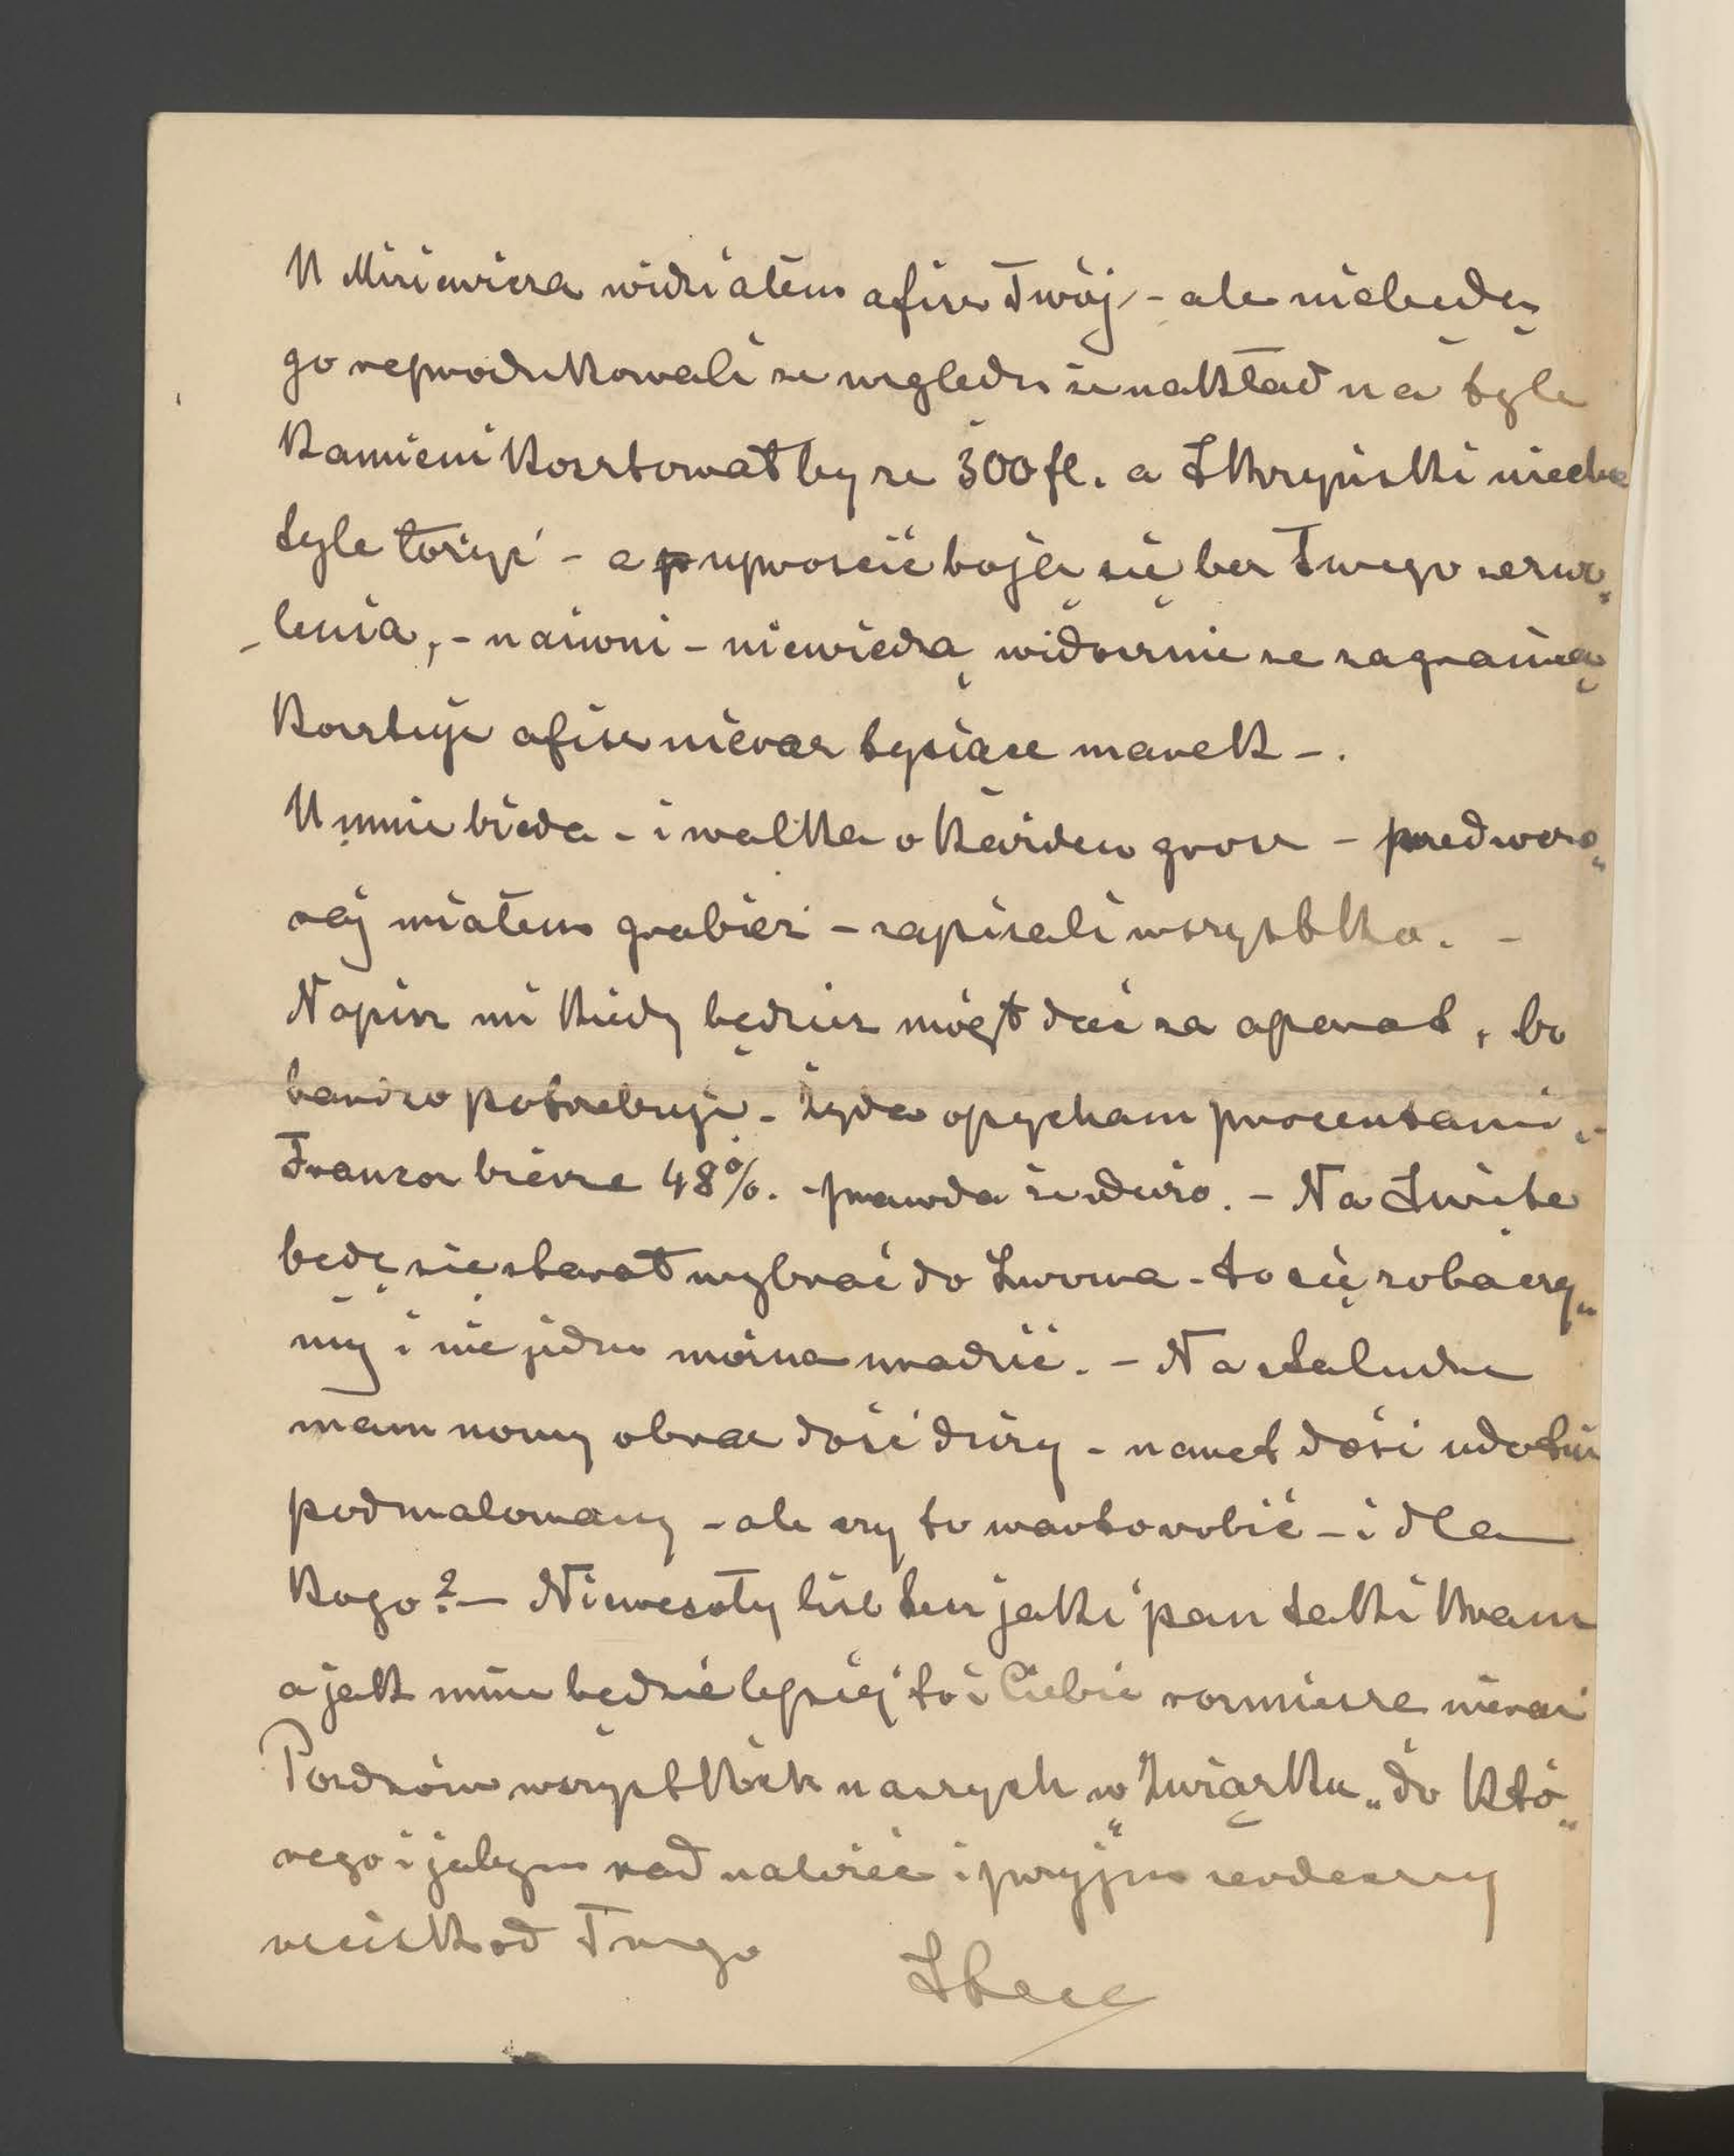 U Misiewicza widziałem afisz Twój - ale niebędą
go reprodukowali ze względu że nakład na tyle
Kamieni Kosztowałby ze 300 fl. a Skrzyński niechce
tyle łożyć - a uprościć boją się bez Twego zezwo„
lenia, - naiwni - niewiedzą widocznie że zagranicą
Kosztuje afisz nieraz tysiące marek -.
U mnie bieda - i walka o Każden grosz - przedwczo„
raj miałem grabież - zapisali wszystko. -
Napisz mi Kiedy będziesz mógł dać za aparat, bo
bardzo potrzebuję. - Żyda opycham procentami. -
Franzos bierze 48%. - prawda że dużo. - Na Święta
będę się starał wybrać do Lwowa - to się zobaczy„
my i nie jedno można uradzić. - Na staludze
mam nowy obraz dość duży - nawet dość udatnie
podmalowany - ale czy to warto robić - i dla
Kogo? - Niewesoły list ten jaki pan taki Kram
a jak mnie będzie lepiej to i Ciebie rozmieszę nieraz
Pozdrów wszystkich naszych w „Związku„ do Któ„
rego i jabym rad należeć i przyjm serdeczny
uścisk od Twego